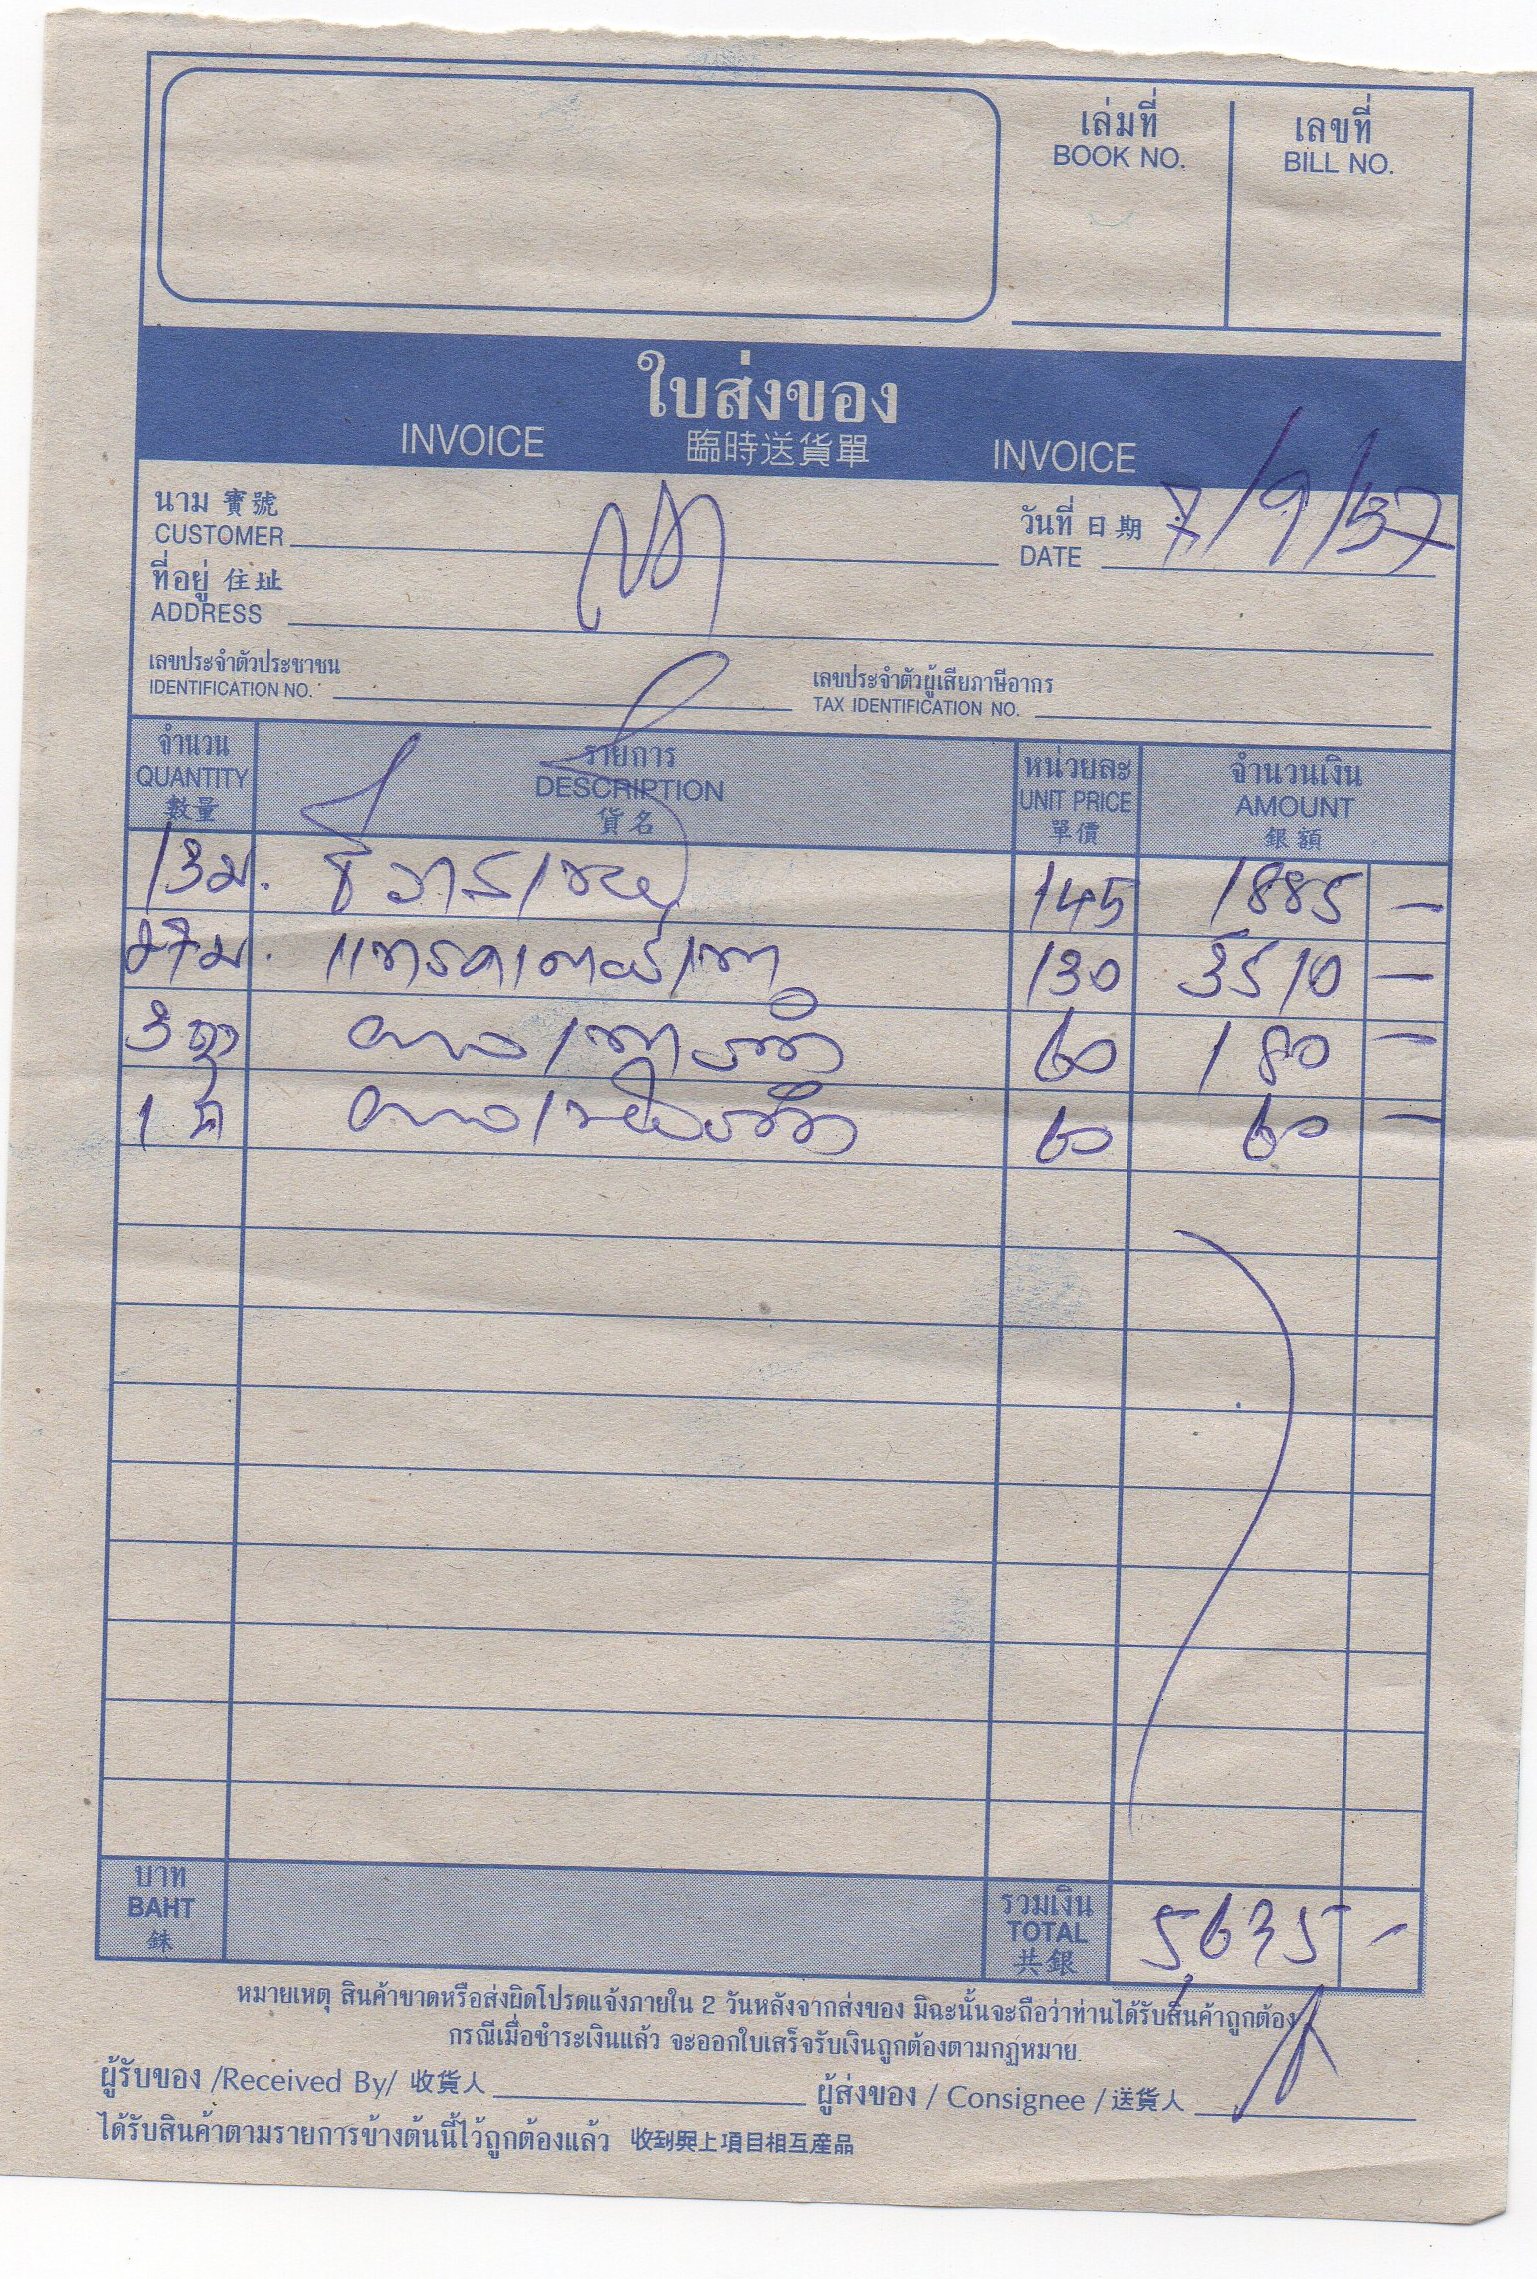 เล่มที่ เลขที่
BOOK NO. BILL NO.
ใบส่งของ
INVOICE 臨時送貨單 INVOICE
นาม 寶號 วันที่ 日期 7/9/57
CUSTOMER DATE
ที่อยู่ 住址
ADDRESS
เลขประจำตัวประชาชน เลขประจำตัวผู้เสียภาษีอากร
IDENTIFICATION NO. TAX IDENTIFICATION NO.
จำนวน รายการ หน่วยละ จำนวนเงิน
QUANTITY DESCRIPTION UNIT PRICE AMOUNT
數量 貨名 單價 銀額
13 ม. 145 1885 -
27 ม. 130 3510 -
3 60 180 -
1 60 60 -
บาท รวมเงิน
BAHT TOTAL 5,635 -
銖 共銀
หมายเหตุ สินค้าขาดหรือส่งผิดโปรดแจ้งภายใน 2 วันหลังจากส่งของ มิฉะนั้นจะถือว่าท่านได้รับสินค้าถูกต้อง
กรณีเมื่อชำระเงินแล้ว จะออกใบเสร็จรับเงินถูกต้องตามกฎหมาย
ผู้รับของ /Received By/ 收貨人 ผู้ส่งของ / Consignee / 送貨人
ได้รับสินค้าตามรายการข้างต้นนี้ไว้ถูกต้องแล้ว 收到與上項目相互產品